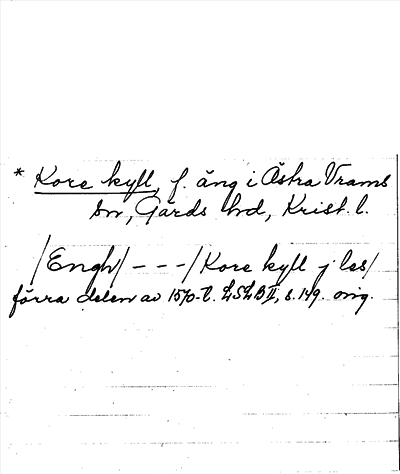 * Kore kyll, f. äng i Östra Vrams
sn, Gärds hd, Krist. l.
/Engh/ - - - /Kore kyll j les/
förra delen av 1570-t. LSLB II, s. 149. orig.